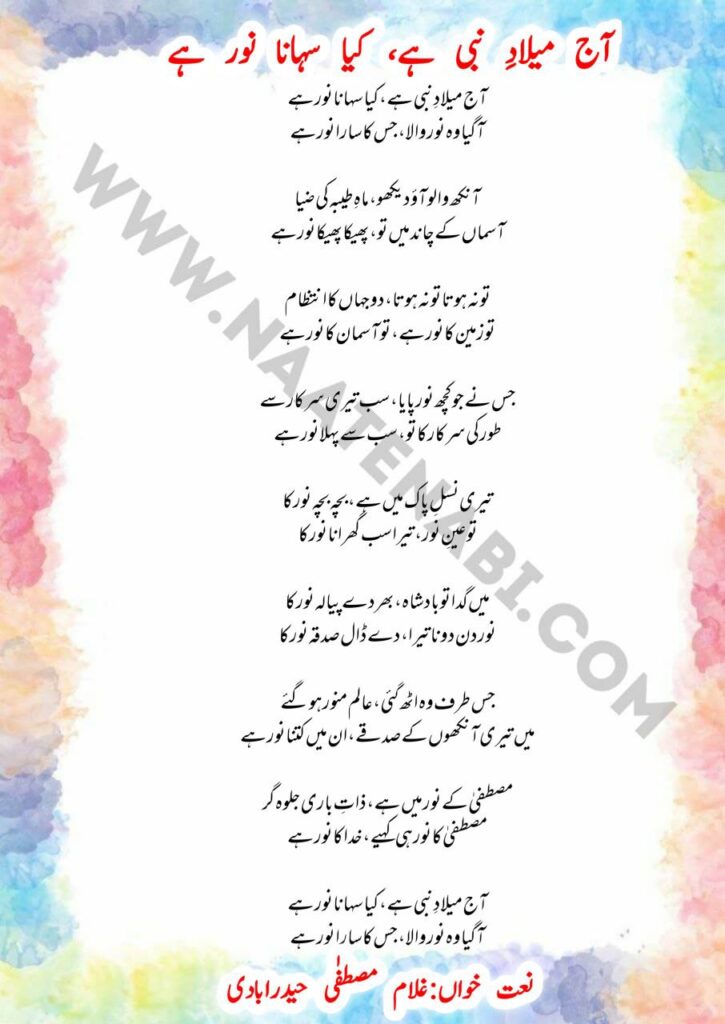 آج میلادِ نبی ہے، کیا سہانا نور ہے
آج میلادِ نبی ہے، کیا سہانا نور ہے
آ گیا وہ نور والا، جس کا سارا نور ہے
آنکھ والو آؤ دیکھو، ماہِ طیبہ کی ضیا
آسماں کے چاند میں تو، پھیکا پھیکا نور ہے
تو نہ ہوتا تو نہ ہوتا، دو جہاں کا انتظام
تو زمین کا نور ہے، تو آسمان کا نور ہے
جس نے جو کچھ نور پایا، سب تیری سرکار سے
طور کی سرکار کا تو، سب سے پہلا نور ہے
تیری نسلِ پاک میں ہے، بچہ بچہ نور کا
تو عینِ نور، تیرا سب گھرانا نور کا
میں گدا تو بادشاہ، بھر دے پیالہ نور کا
نور دن دونا تیرا، دے ڈال صدقہ نور کا
جس طرف وہ اٹھ گئی، عالم منور ہو گئے
میں تیری آنکھوں کے صدقے، ان میں کتنا نور ہے
مصطفیٰ کے نور میں ہے، ذاتِ باری جلوہ گر
مصطفیٰ کا نور ہی کہیے، خدا کا نور ہے
آج میلادِ نبی ہے، کیا سہانا نور ہے
آ گیا وہ نور والا، جس کا سارا نور ہے
نعت خواں: غلام مصطفٰی حیدرابادی
WWW.NAATENABI.COM